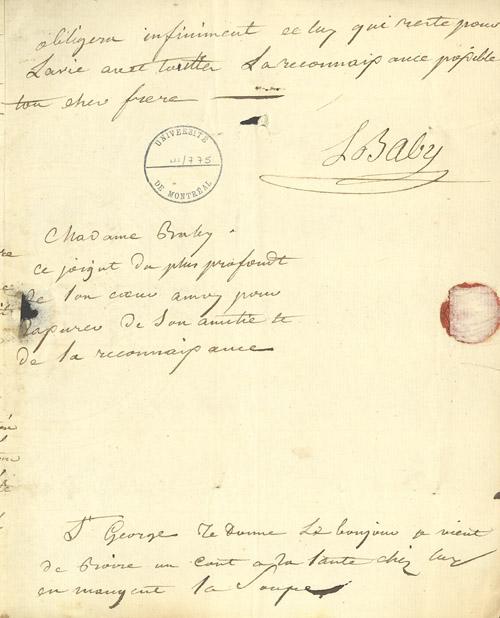 obligera infiniment ce luy qui reste pour
La vie avec toutte La reconnaissance possible
ton cher frere
LBaby
UNIVERSITÉ
III/775
DE MONTRÉAL
Madame Baby
ce joigt du plus profondt
de Son cœur a moy pour
de Son amitié et
de Sa reconnaissance
St George te donne Le bonjour
de Boire un Cout a ta Sante chez luy
en mangent la Soupe